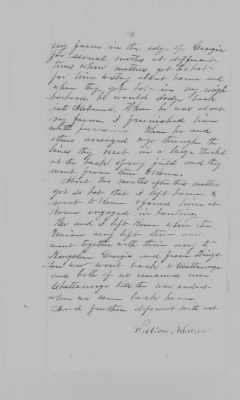 my farm in the edge of Georgia
for several weeks at different
times when matters got too hot
for him to stay about home and
when they got hot in my neigh
borhood he would dodge back
into Alabama, When he was about
my farm I furnished him
with provisions When he and
others arranged to go through the
lines they met in a large thicket
at the back of my field and they
went from there to Rome.
About two months after this matters
got so hot that I left home &
went to Rome & found him at
Rome engaged in hauling
He and I left Rome when the
army left there and
went together with their army to
Kingston Georgia and from Kings
ton we went back to Chattanooga
and both of us remained near
Chattanooga till the war ended
when we came back home
And further deponent saith not
William Wheeler